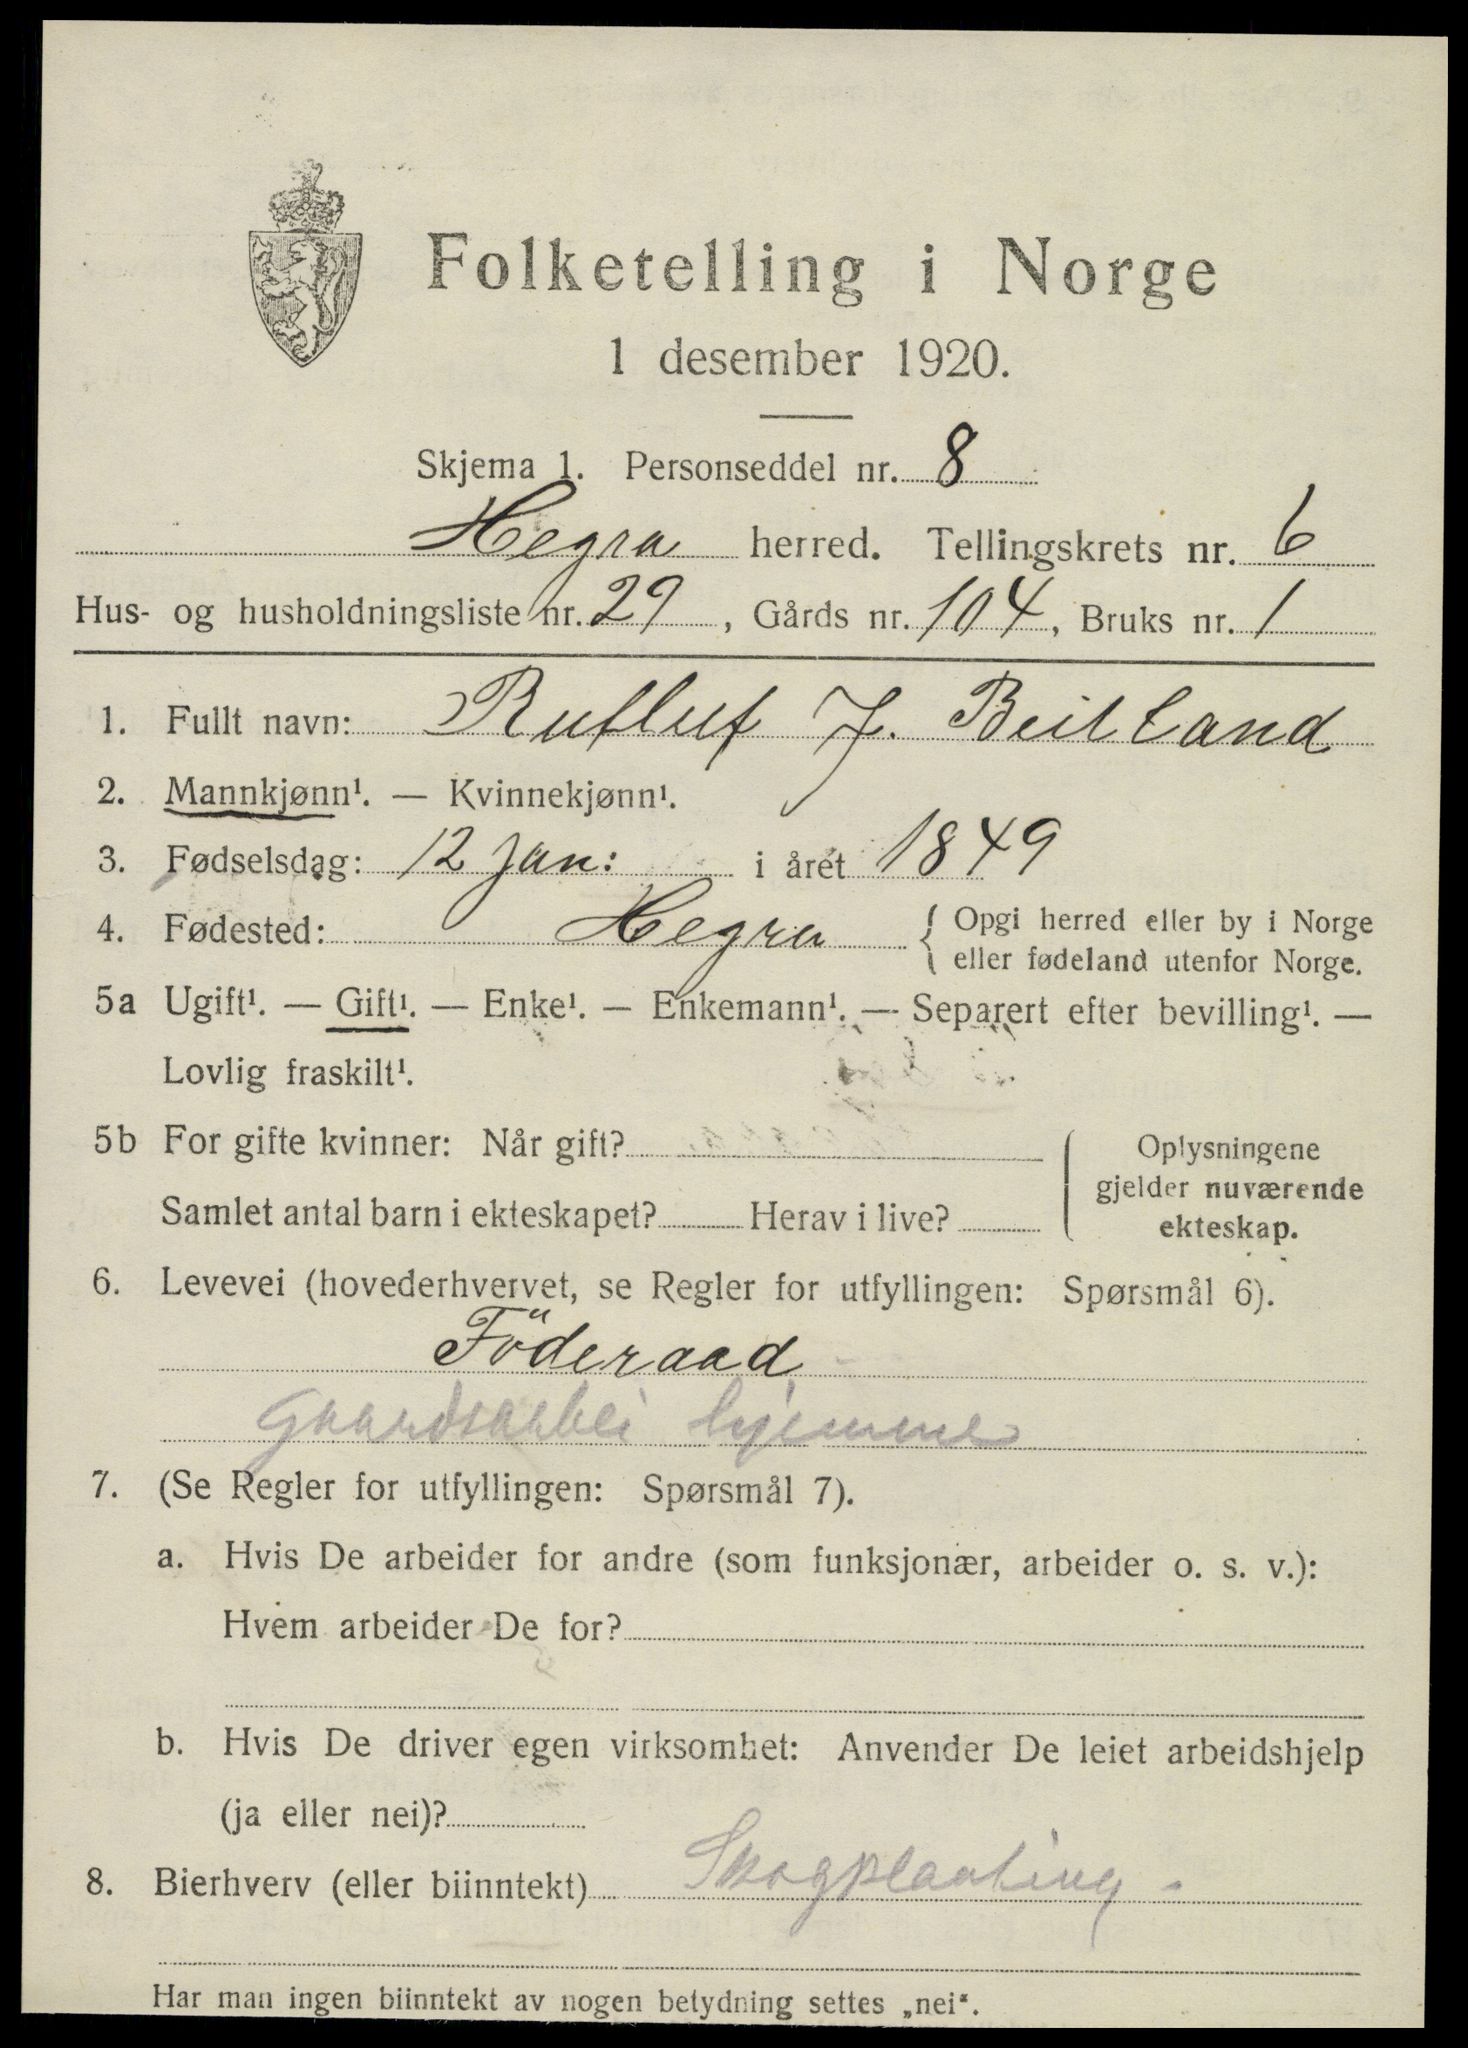 Folketelling i Norge
1 desember 1920.
Skjema 1. Personseddel nr. 8
Hegra herred. Tellingskrets nr. 6
Hus- og husholdningsliste nr. 29, Gårds nr. 104, Bruks nr. 1
1. Fullt navn: J. Beitland
2. Mannkjønn¹. — Kvinnekjønn¹.
3. Fødselsdag: 12 Jan: i året 1849
4. Fødested: Hegra { Opgi herred eller by i Norge
eller fødeland utenfor Norge.
5a Ugift¹. — Gift¹. — Enke¹. — Enkemann¹. — Separert efter bevilling¹. —
Lovlig fraskilt¹.
5b For gifte kvinner: Når gift?
Samlet antal barn i ekteskapet? Herav i live?
Oplysningene
gjelder nuværende
ekteskap.
6. Levevei (hovederhvervet, se Regler for utfyllingen: Spørsmål 6).
Föderaad
Gaardsarbei hjemme
7. (Se Regler for utfyllingen: Spørsmål 7).
a. Hvis De arbeider for andre (som funksjonær, arbeider o. s. v.):
Hvem arbeider De for?
b. Hvis De driver egen virksomhet: Anvender De leiet arbeidshjelp
(ja eller nei)?
8. Bierhverv (eller biinntekt) Skogplanting -
Har man ingen biinntekt av nogen betydning settes „nei“.